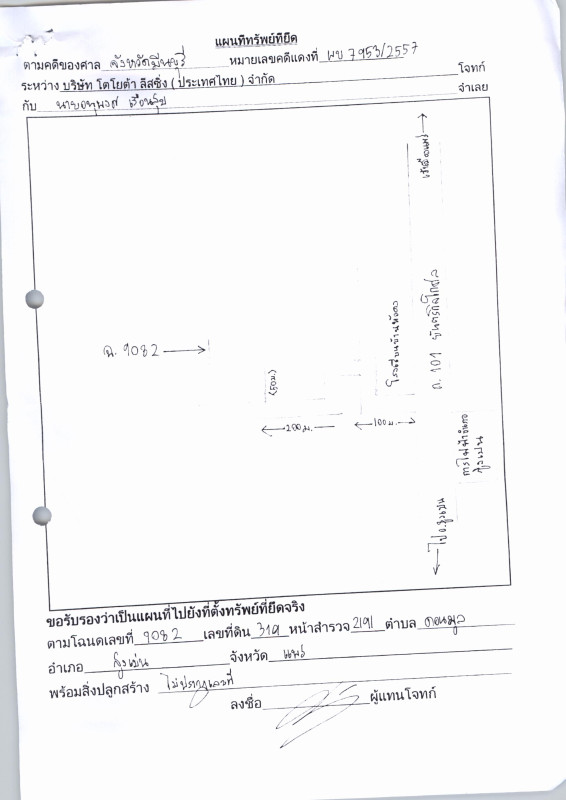 แผนที่ทรัพย์ที่ยึด
ตามคดีของศาล จังหวัดมีนบุรี หมายเลขคดีแดงที่ ผบ 7953/2557
ระหว่าง บริษัท โตโยต้า ลีสซิ่ง ( ประเทศไทย ) จำกัด โจทก์
กับ นาย จำเลย
ฉ. 9082
(50ม.)
200 ม.
100 ม.
ถ. 101 ยันตรกิจโกศล
การไฟฟ้า
สูงเม่น
ไป อ.สูงเม่น
ขอรับรองว่าเป็นแผนที่ไปยังที่ตั้งทรัพย์ที่ยึดจริง
ตามโฉนดเลขที่ 9082 เลขที่ดิน 319 หน้าสำรวจ 2191 ตำบล ดอนมูล
อำเภอ สูงเม่น จังหวัด แพร่
พร้อมสิ่งปลูกสร้าง ไม่ปรากฏเลขที่
ลงชื่อ ผู้แทนโจทก์